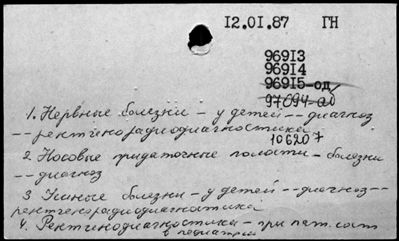 12.01.87 ГН
96913
96914
96915-од
97094-аб
1. Нервные болезни - у детей -- диагноз
-- рентгенорадиодиагностика
106207
2. Носовые придаточные полости - болезни
-- диагноз
3. Ушные болезни - у детей -- диагноз --
рентгенорадиодиагностика
4. Рентгенодиагностика - при пат. сост.
в педиатрии